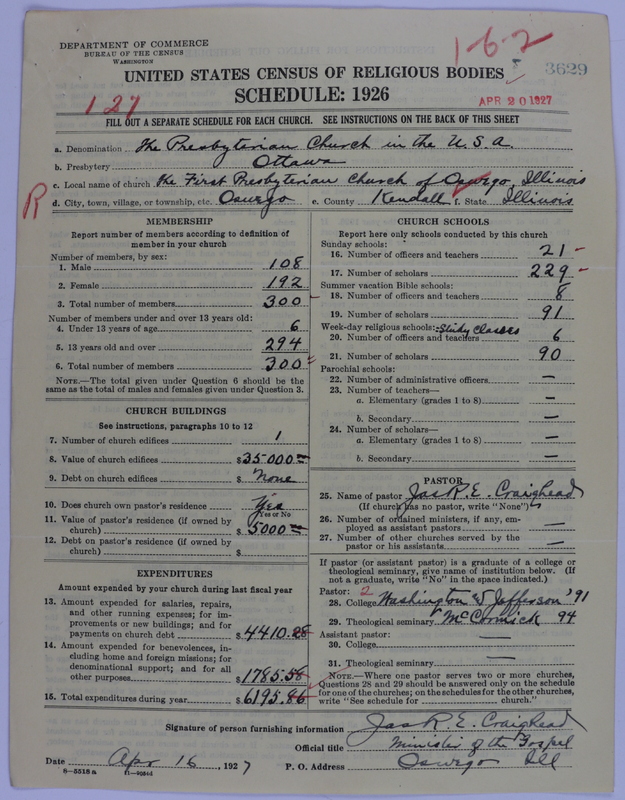 DEPARTMENT OF COMMERCE
BUREAU OF THE CENSUS
WASHINGTON
1-6-2
3629
UNITED STATES CENSUS OF RELIGIOUS BODIES
SCHEDULE: 1926
127
APR 20 1927
FILL OUT A SEPARATE SCHEDULE FOR EACH CHURCH. SEE INSTRUCTIONS ON THE BACK OF THIS SHEET
a. Denomination The Presbyterian Church in the U.S.A.
b. Presbytery Ottawa
c. Local name of church The First Presbyterian Church of Oswego, Illinois
R
d. City, town, village, or township, etc. Oswego e. County Kendall f. State Illinois
MEMBERSHIP
Report number of members according to definition of
member in your church
Number of members, by sex:
1. Male 108
2. Female 192
3. Total number of members 300
Number of members under and over 13 years old:
4. Under 13 years of age 6
5. 13 years old and over 294
6. Total number of members 300
NOTE.—The total given under Question 6 should be the
same as the total of males and females given under Question 3.
CHURCH BUILDINGS
See instructions, paragraphs 10 to 12
7. Number of church edifices 1
8. Value of church edifices $35000
9. Debt on church edifices $ None
10. Does church own pastor's residence Yes
Yes or No
11. Value of pastor's residence (if owned by
church) $5000
12. Debt on pastor's residence (if owned by
church) $
EXPENDITURES
Amount expended by your church during last fiscal year
13. Amount expended for salaries, repairs,
and other running expenses; for im-
provements or new buildings; and for
payments on church debt $4410.28
14. Amount expended for benevolences, in-
cluding home and foreign missions; for
denominational support; and for all
other purposes $1785.58
15. Total expenditures during year $6195.86
CHURCH SCHOOLS
Report here only schools conducted by this church
Sunday schools:
16. Number of officers and teachers 21
17. Number of scholars 229
Summer vacation Bible schools:
18. Number of officers and teachers 8
19. Number of scholars 91
Week-day religious schools: Study Classes
20. Number of officers and teachers 6
21. Number of scholars 90
Parochial schools:
22. Number of administrative officers —
23. Number of teachers—
a. Elementary (grades 1 to 8) —
b. Secondary —
24. Number of scholars—
a. Elementary (grades 1 to 8) —
b. Secondary —
PASTOR
25. Name of pastor Jas. R. E. Craighead
(If church has no pastor, write "None")
26. Number of ordained ministers, if any, em-
ployed as assistant pastors —
27. Number of other churches served by the
pastor or his assistants —
If pastor (or assistant pastor) is a graduate of a college or
theological seminary, give name of institution below. (If
not a graduate, write "No" in the space indicated.)
Pastor: 2
28. College Washington & Jefferson '91
29. Theological seminary McCormick 94
Assistant pastor:
30. College —
31. Theological seminary —
NOTE.—Where one pastor serves two or more churches,
Questions 28 and 29 should be answered only on the schedule
for one of the churches; on the schedules for the other churches,
write "See schedule for church."
Signature of person furnishing information Jas. R. E. Craighead
Official title Minister of the Gospel
Date Apr 16, 1927 P. O. Address Oswego Ill
8—5518a